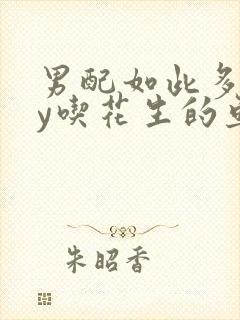 男配如此多
y喫花生的
朱昭香